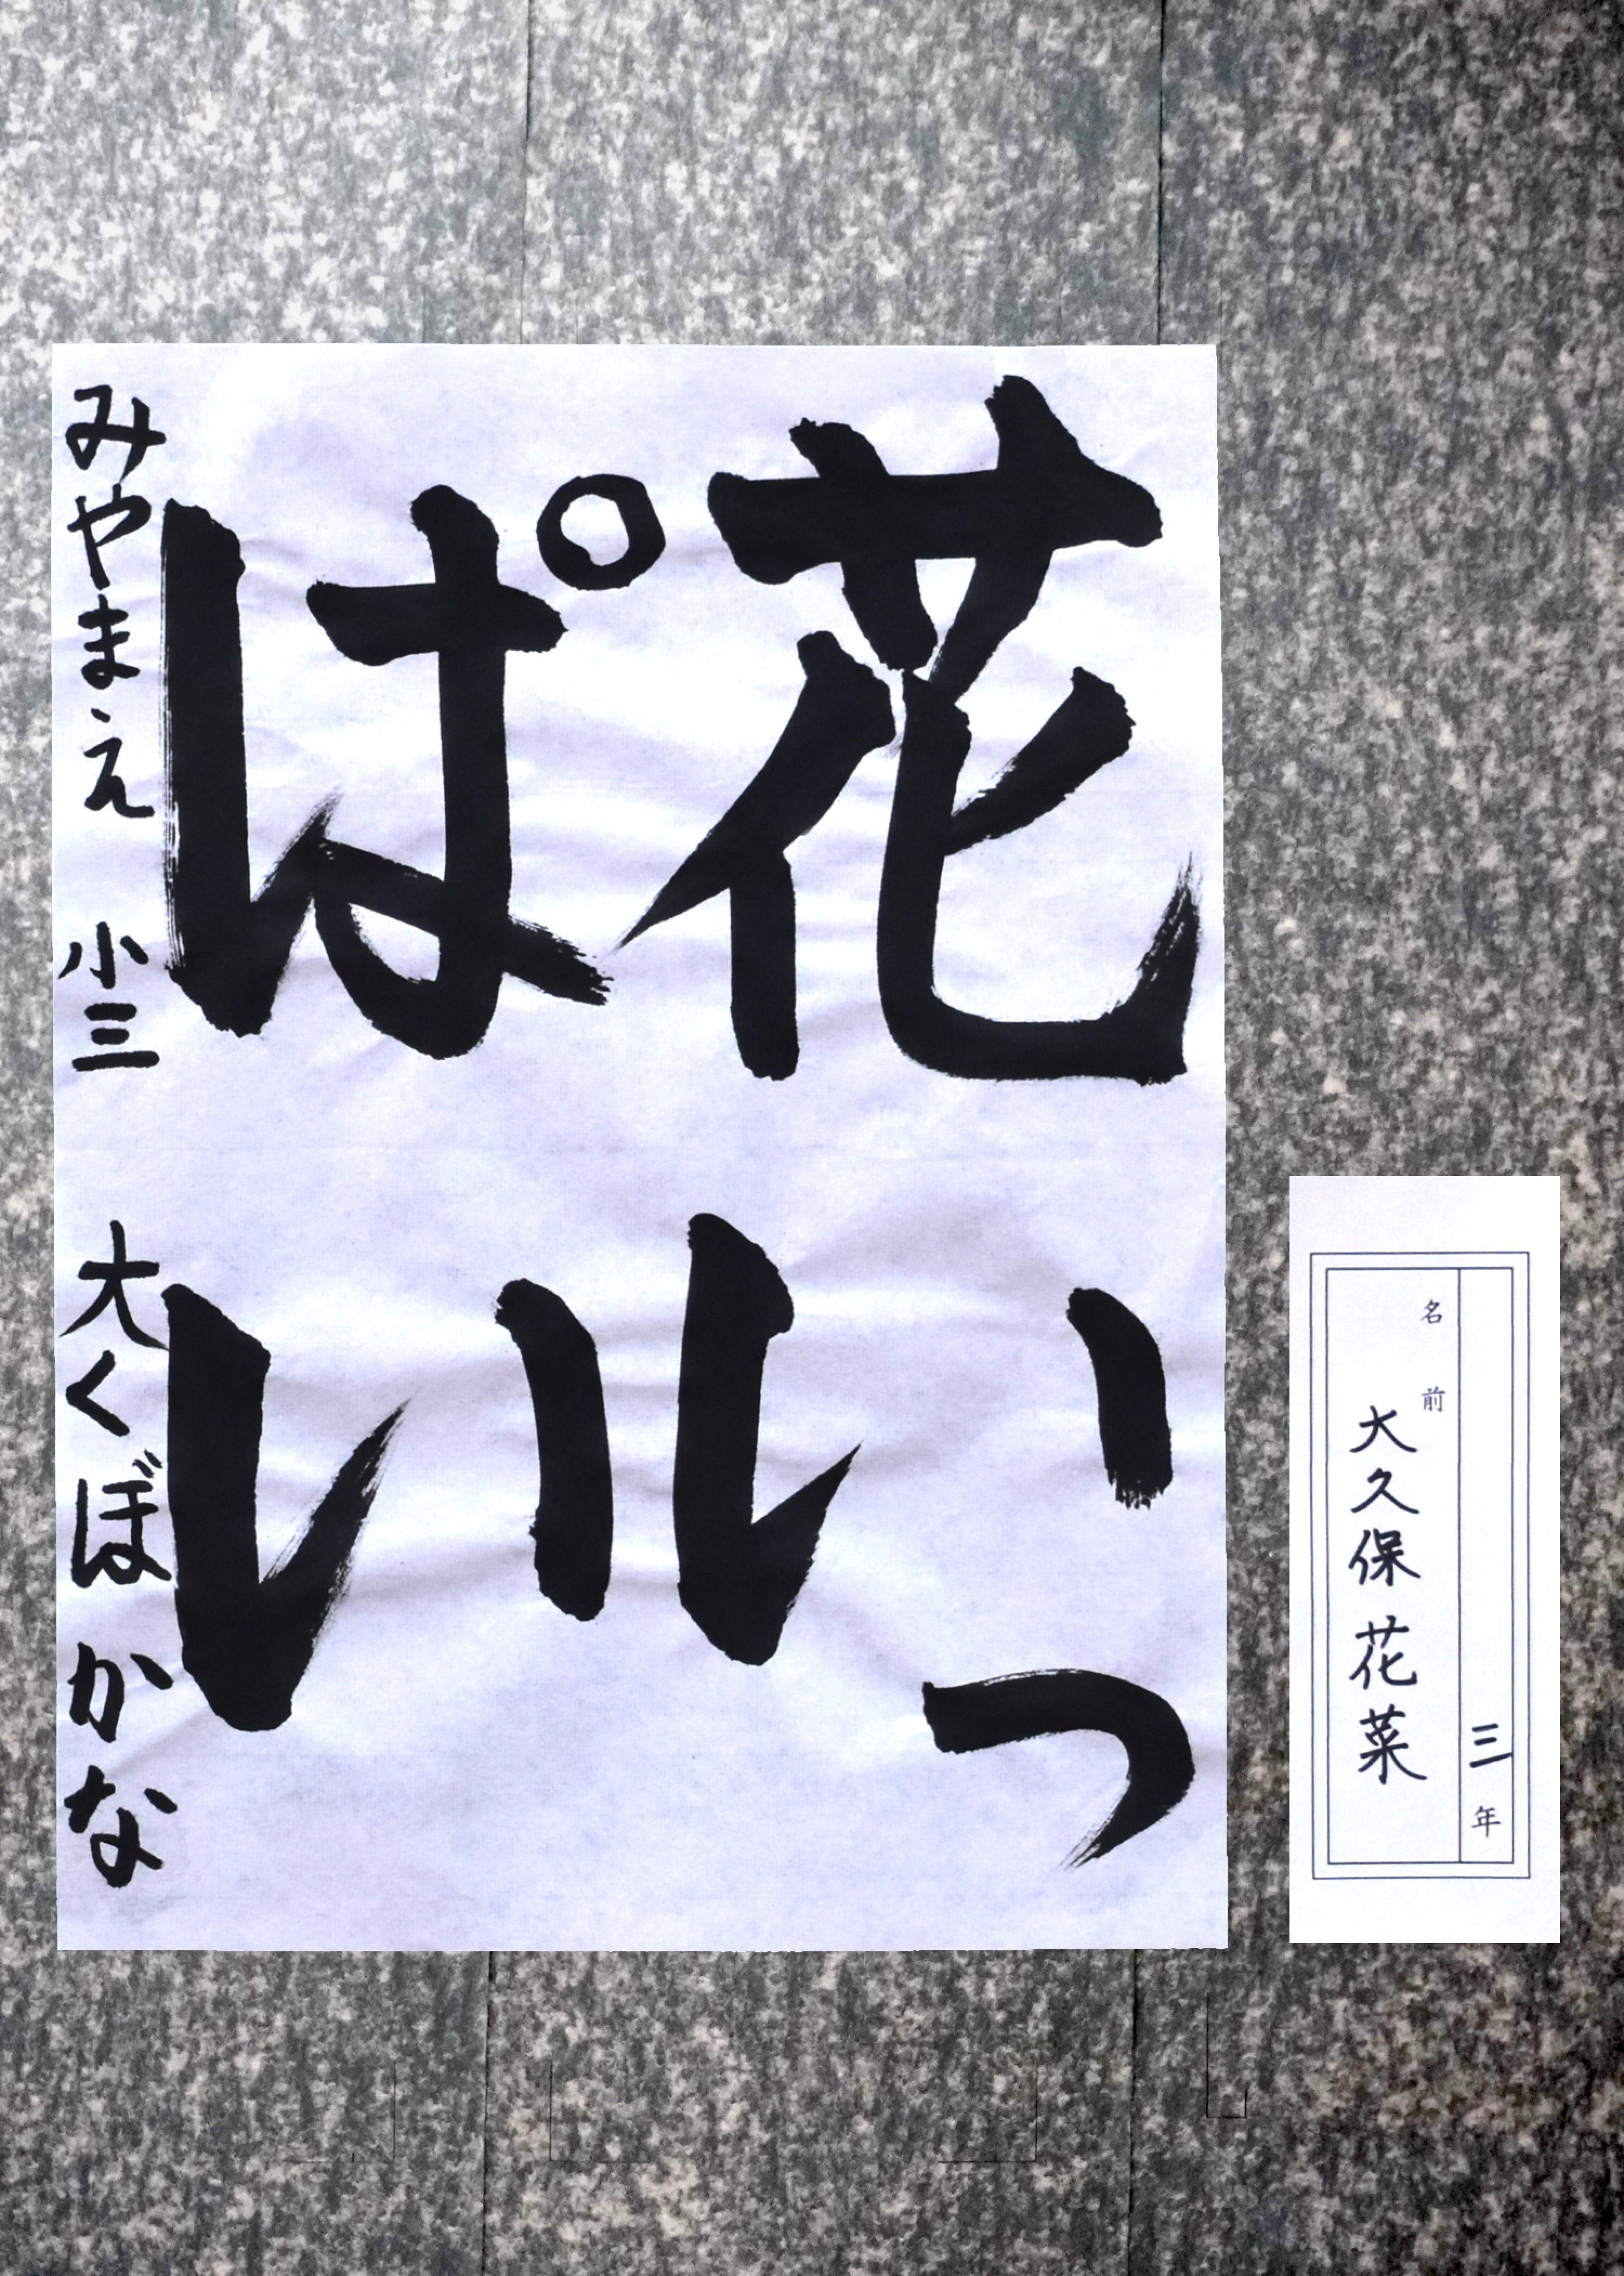 花いっ
ぱい
みやまえ 小三 大くぼ かな
三年
名前
大久保 花菜